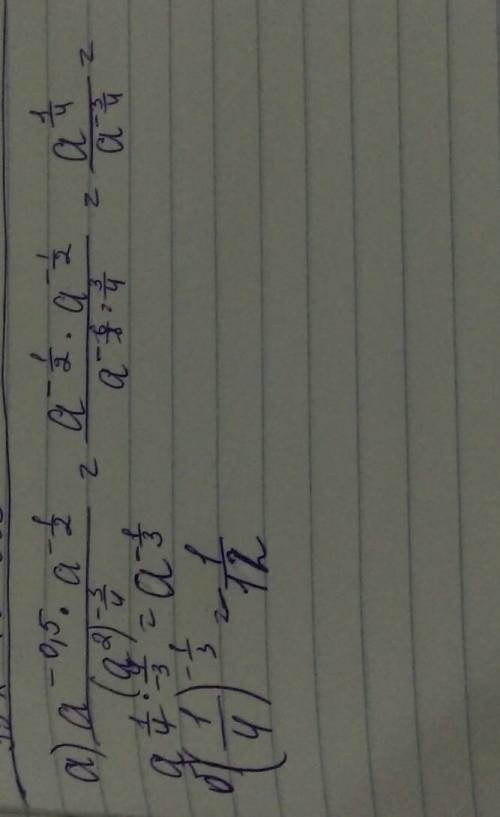 а) (a^{-0,5} · a^{-1/2}) / (a^2)^{-3/4} = (a^{-1/2} · a^{-1/2}) / a^{-6/8 = 3/4} = a^{1/4} / a^{-3/4} =
a^{1/4 · 4/-3} = a^{-1/3}
б) (1/4)^{-1/3} = 1/12